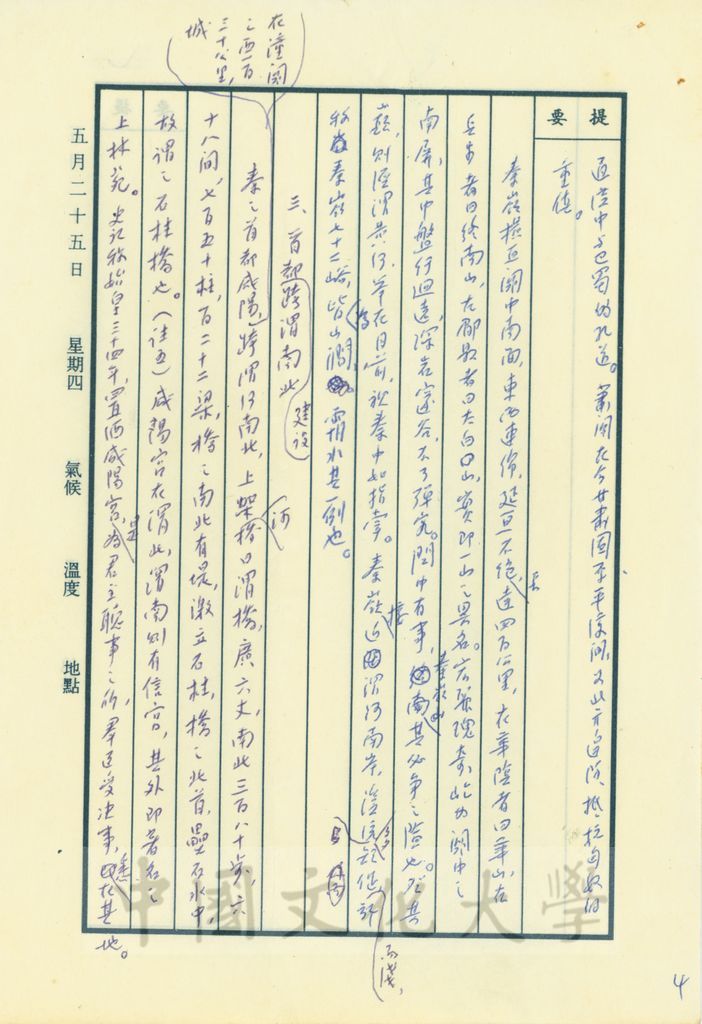 提要
通漢中与巴蜀的孔道。蕭関在今甘肅固原平涼間,
重鎮。
秦嶺橫亘関中南面,東西連綿,延亘不絶,長達四百公里,在華陰者曰華山,在
長安者曰終南山,在郿縣者曰太白山,實即一山之異名。岩壑瑰奇,屹为関中之
南屏,其中盤行迴遠,深岩邃谷,不可殫究。関中有事,秦嶺山南其必争之險也。登其
巔,則涇渭黃河举在目前,視秦中如指掌。秦嶺接近渭河南岸,
秦嶺七十二峪,皆为山澗,霸水其一例也。
三、首都跨渭南北建設
在潼関之西一百三十公里,
城
秦之首都咸陽,跨渭河南北,上架橋曰渭橋,廣六丈,南北三百八十步,六
十八間,七百五十柱,百二十二梁,橋之南北有堤,激立石柱,橋之北首,壘石水中,
故謂之石柱橋也。(註五)咸陽宮在渭北,渭南則有信宮,其外即著名之
上林苑。史記称始皇三十四年,置酒咸陽宮,是为君主聽事之所,羣臣受决事,悉在其地。
五月二十五日 星期四 氣候 溫度 地點
中國文化大學
4